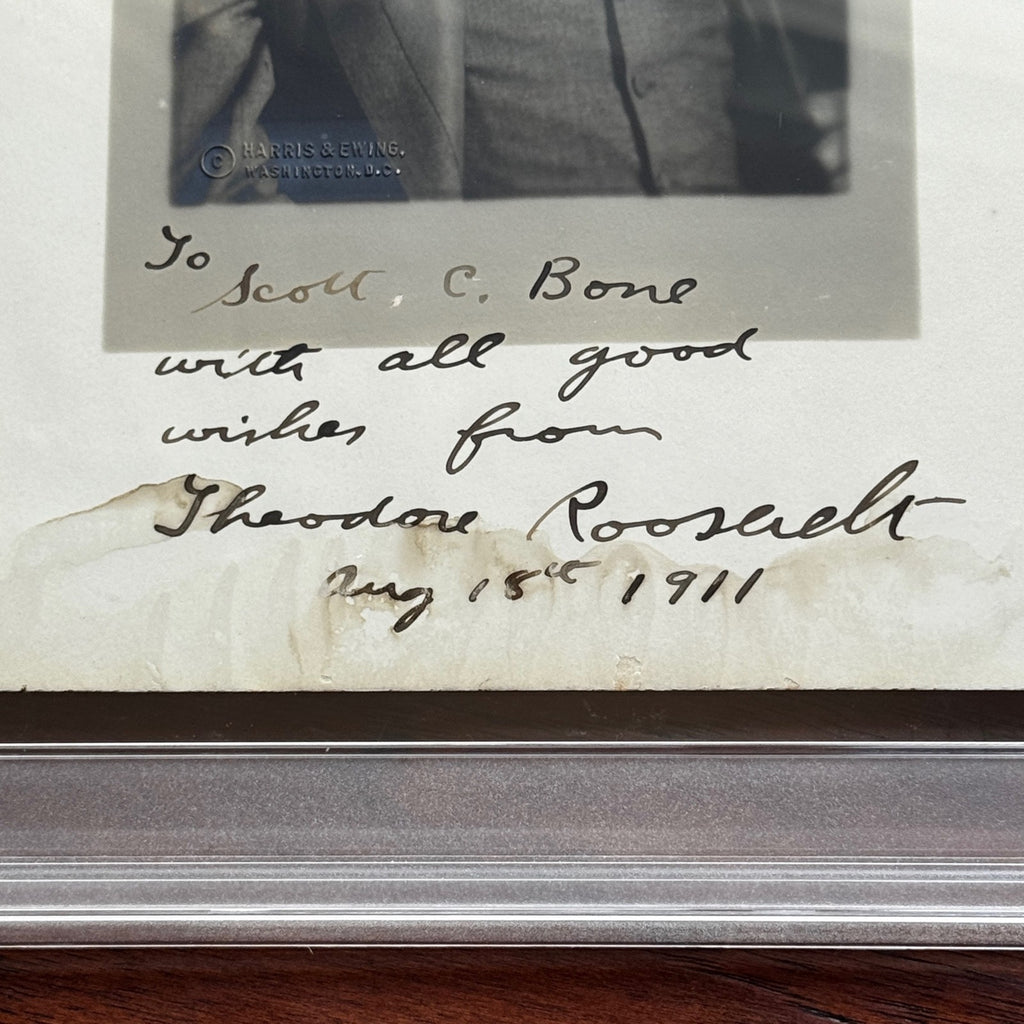 © HARRIS & EWING.
WASHINGTON, D.C.
To
Scott. C. Bone
with all good
wishes from
Theodore Roosevelt
Aug 18th 1911